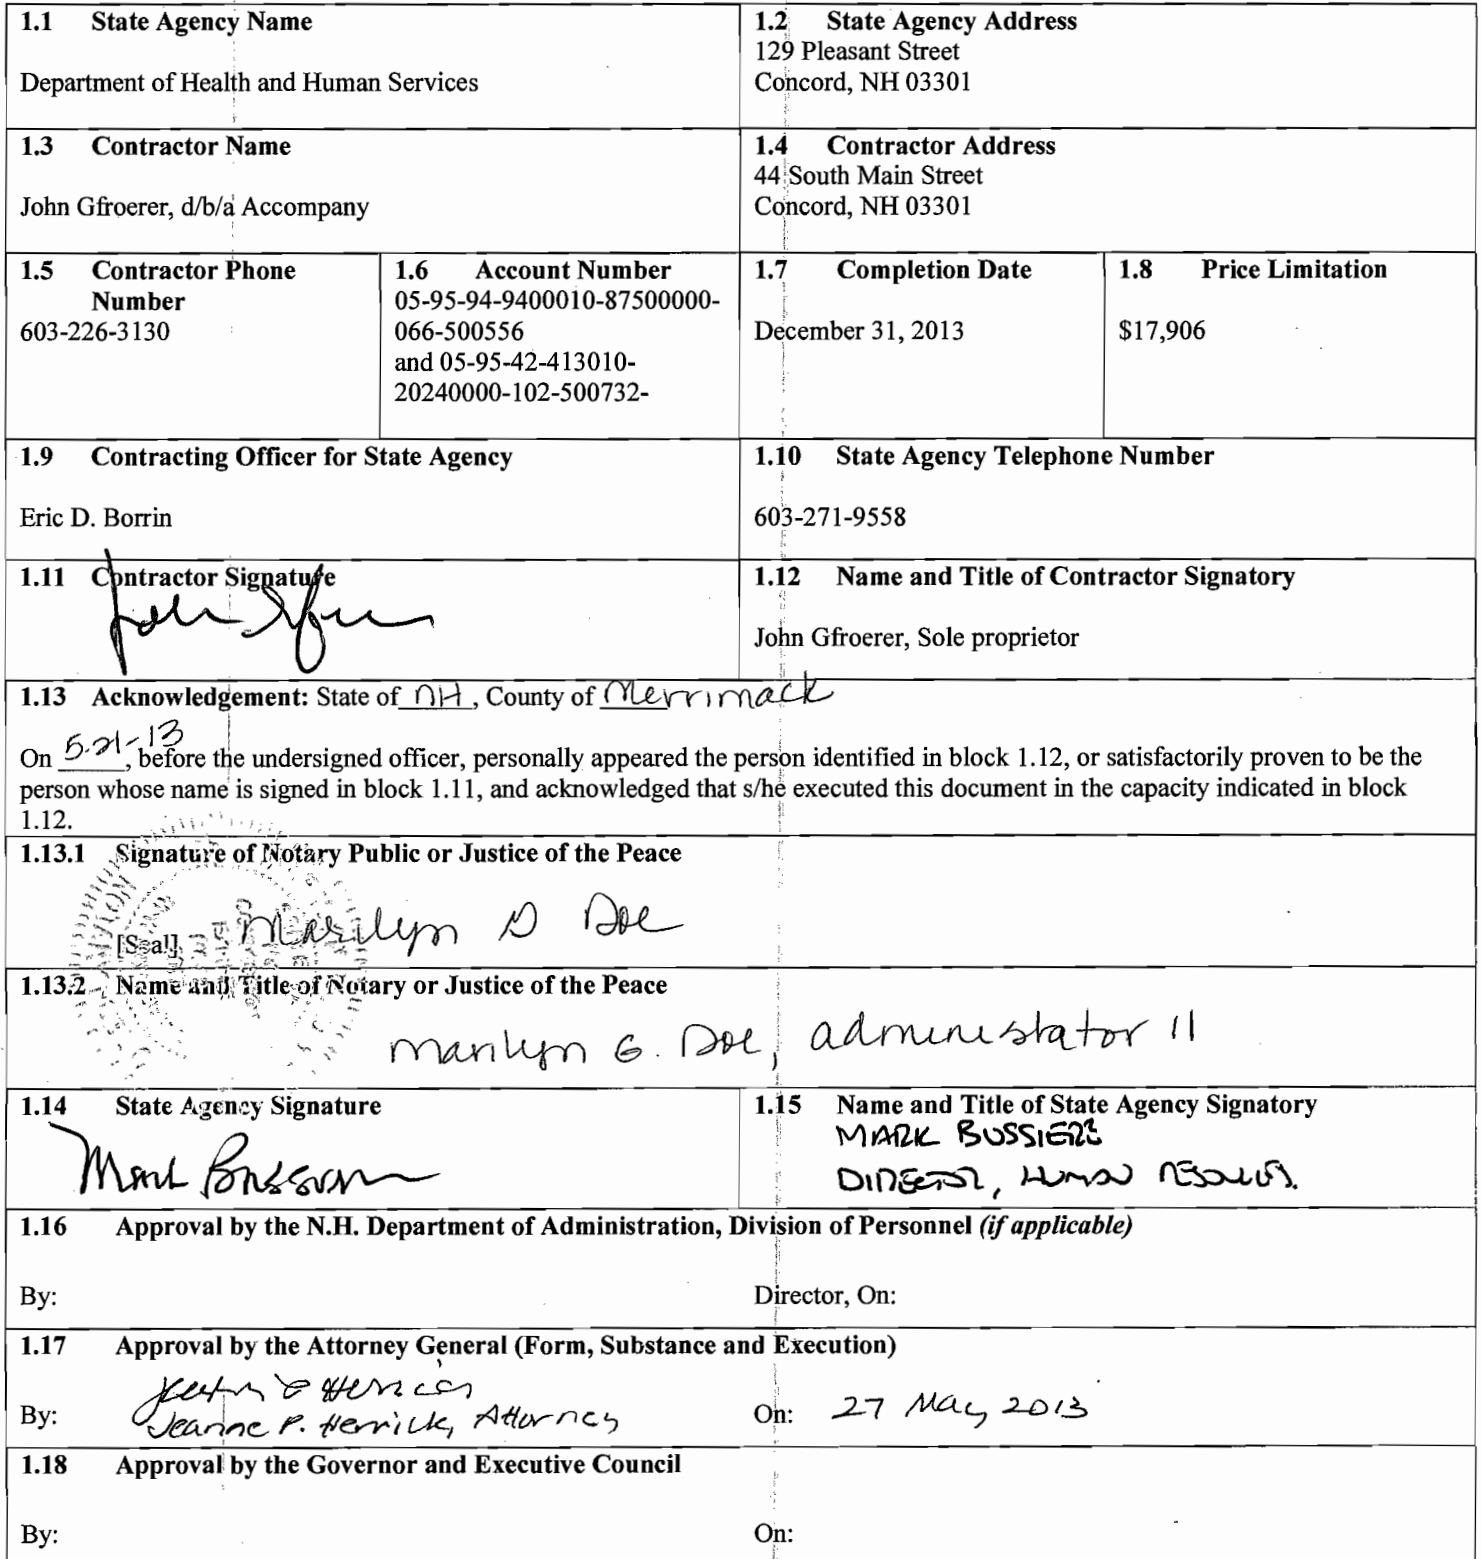 1.1 State Agency Name
Department of Health and Human Services
1.2 State Agency Address
129 Pleasant Street
Concord, NH 03301
1.3 Contractor Name
John Gfroerer, d/b/a Accompany
1.4 Contractor Address
44 South Main Street
Concord, NH 03301
1.5 Contractor Phone
Number
603-226-3130
1.6 Account Number
05-95-94-9400010-87500000-
066-500556
and 05-95-42-413010-
20240000-102-500732-
1.7 Completion Date
December 31, 2013
1.8 Price Limitation
$17,906
1.9 Contracting Officer for State Agency
Eric D. Borrin
1.10 State Agency Telephone Number
603-271-9558
1.11 Contractor Signature
1.12 Name and Title of Contractor Signatory
John Gfroerer, Sole proprietor
1.13 Acknowledgement: State of NH, County of Merrimack
On 5-21-13, before the undersigned officer, personally appeared the person identified in block 1.12, or satisfactorily proven to be the
person whose name is signed in block 1.11, and acknowledged that s/he executed this document in the capacity indicated in block
1.12.
1.13.1 Signature of Notary Public or Justice of the Peace
Marilyn G Doe
[Seal]
1.13.2 Name and Title of Notary or Justice of the Peace
Marilyn G. Doe, administator II
1.14 State Agency Signature
1.15 Name and Title of State Agency Signatory
MARK BUSSIERE
DIRECTOR, HUMAN RESOURCES.
1.16 Approval by the N.H. Department of Administration, Division of Personnel (if applicable)
By:
Director, On:
1.17 Approval by the Attorney General (Form, Substance and Execution)
By: Jeanne P. Herrick, Attorney
On: 27 May 2013
1.18 Approval by the Governor and Executive Council
By:
On: